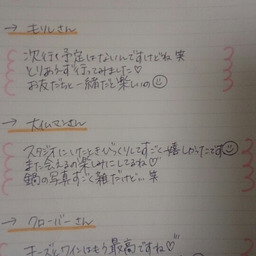 → モリルさん
次行く予定はないんですけどね 笑
とりあえず行ってみました♡
お友だちと一緒だと楽しいの☺
→ タイムマンさん
スタジオにいたときびっくりしてすごく嬉しかったです☺
また会えるの楽しみにしてるね♡
鍋の写真すごく雑だけど… 笑
→ クローバーさん
チーズとワインはもう最高ですね♡